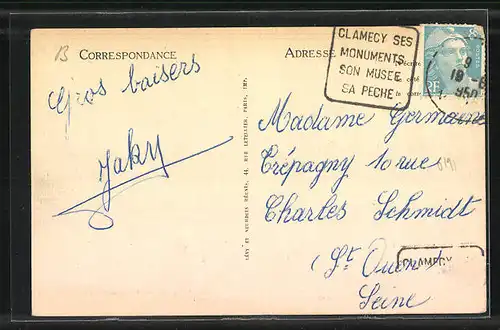 B
CORRESPONDANCE
Gros baisers
Jaky
LÉVY ET NEURDEIN RÉUNIS, 44, RUE LETELLIER, PARIS, IMP.
ADRESSE
CLAMECY SES
MONUMENTS
SON MUSEE
SA PECHE
RF
9
19 -6
950
Madame Germaine
Trépagny 10 rue
Charles Schmidt
St Ouen
CLAMECY
Seine